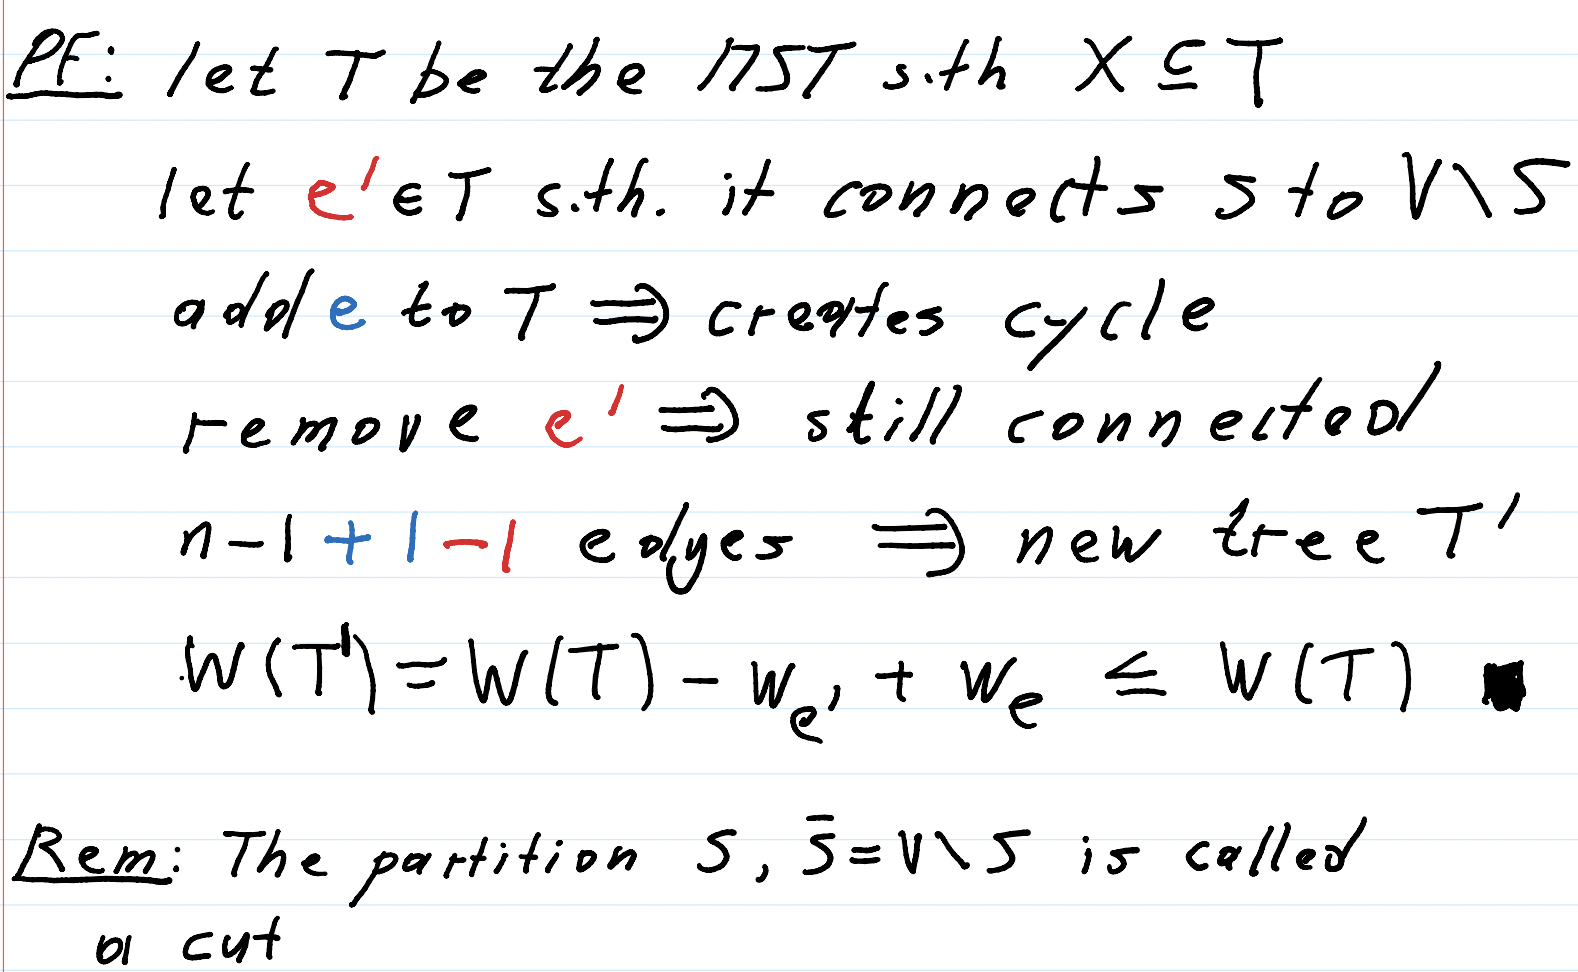 PF: let T be the MST s.th X ⊆ T
let e' ∈ T s.th. it connects S to V\S
add e to T ⇒ creates cycle
remove e' ⇒ still connected
n-1+1-1 edges ⇒ new tree T'
W(T') = W(T) - w_e' + w_e ≤ W(T) ■
Rem: The partition S, S̄ = V\S is called
a cut